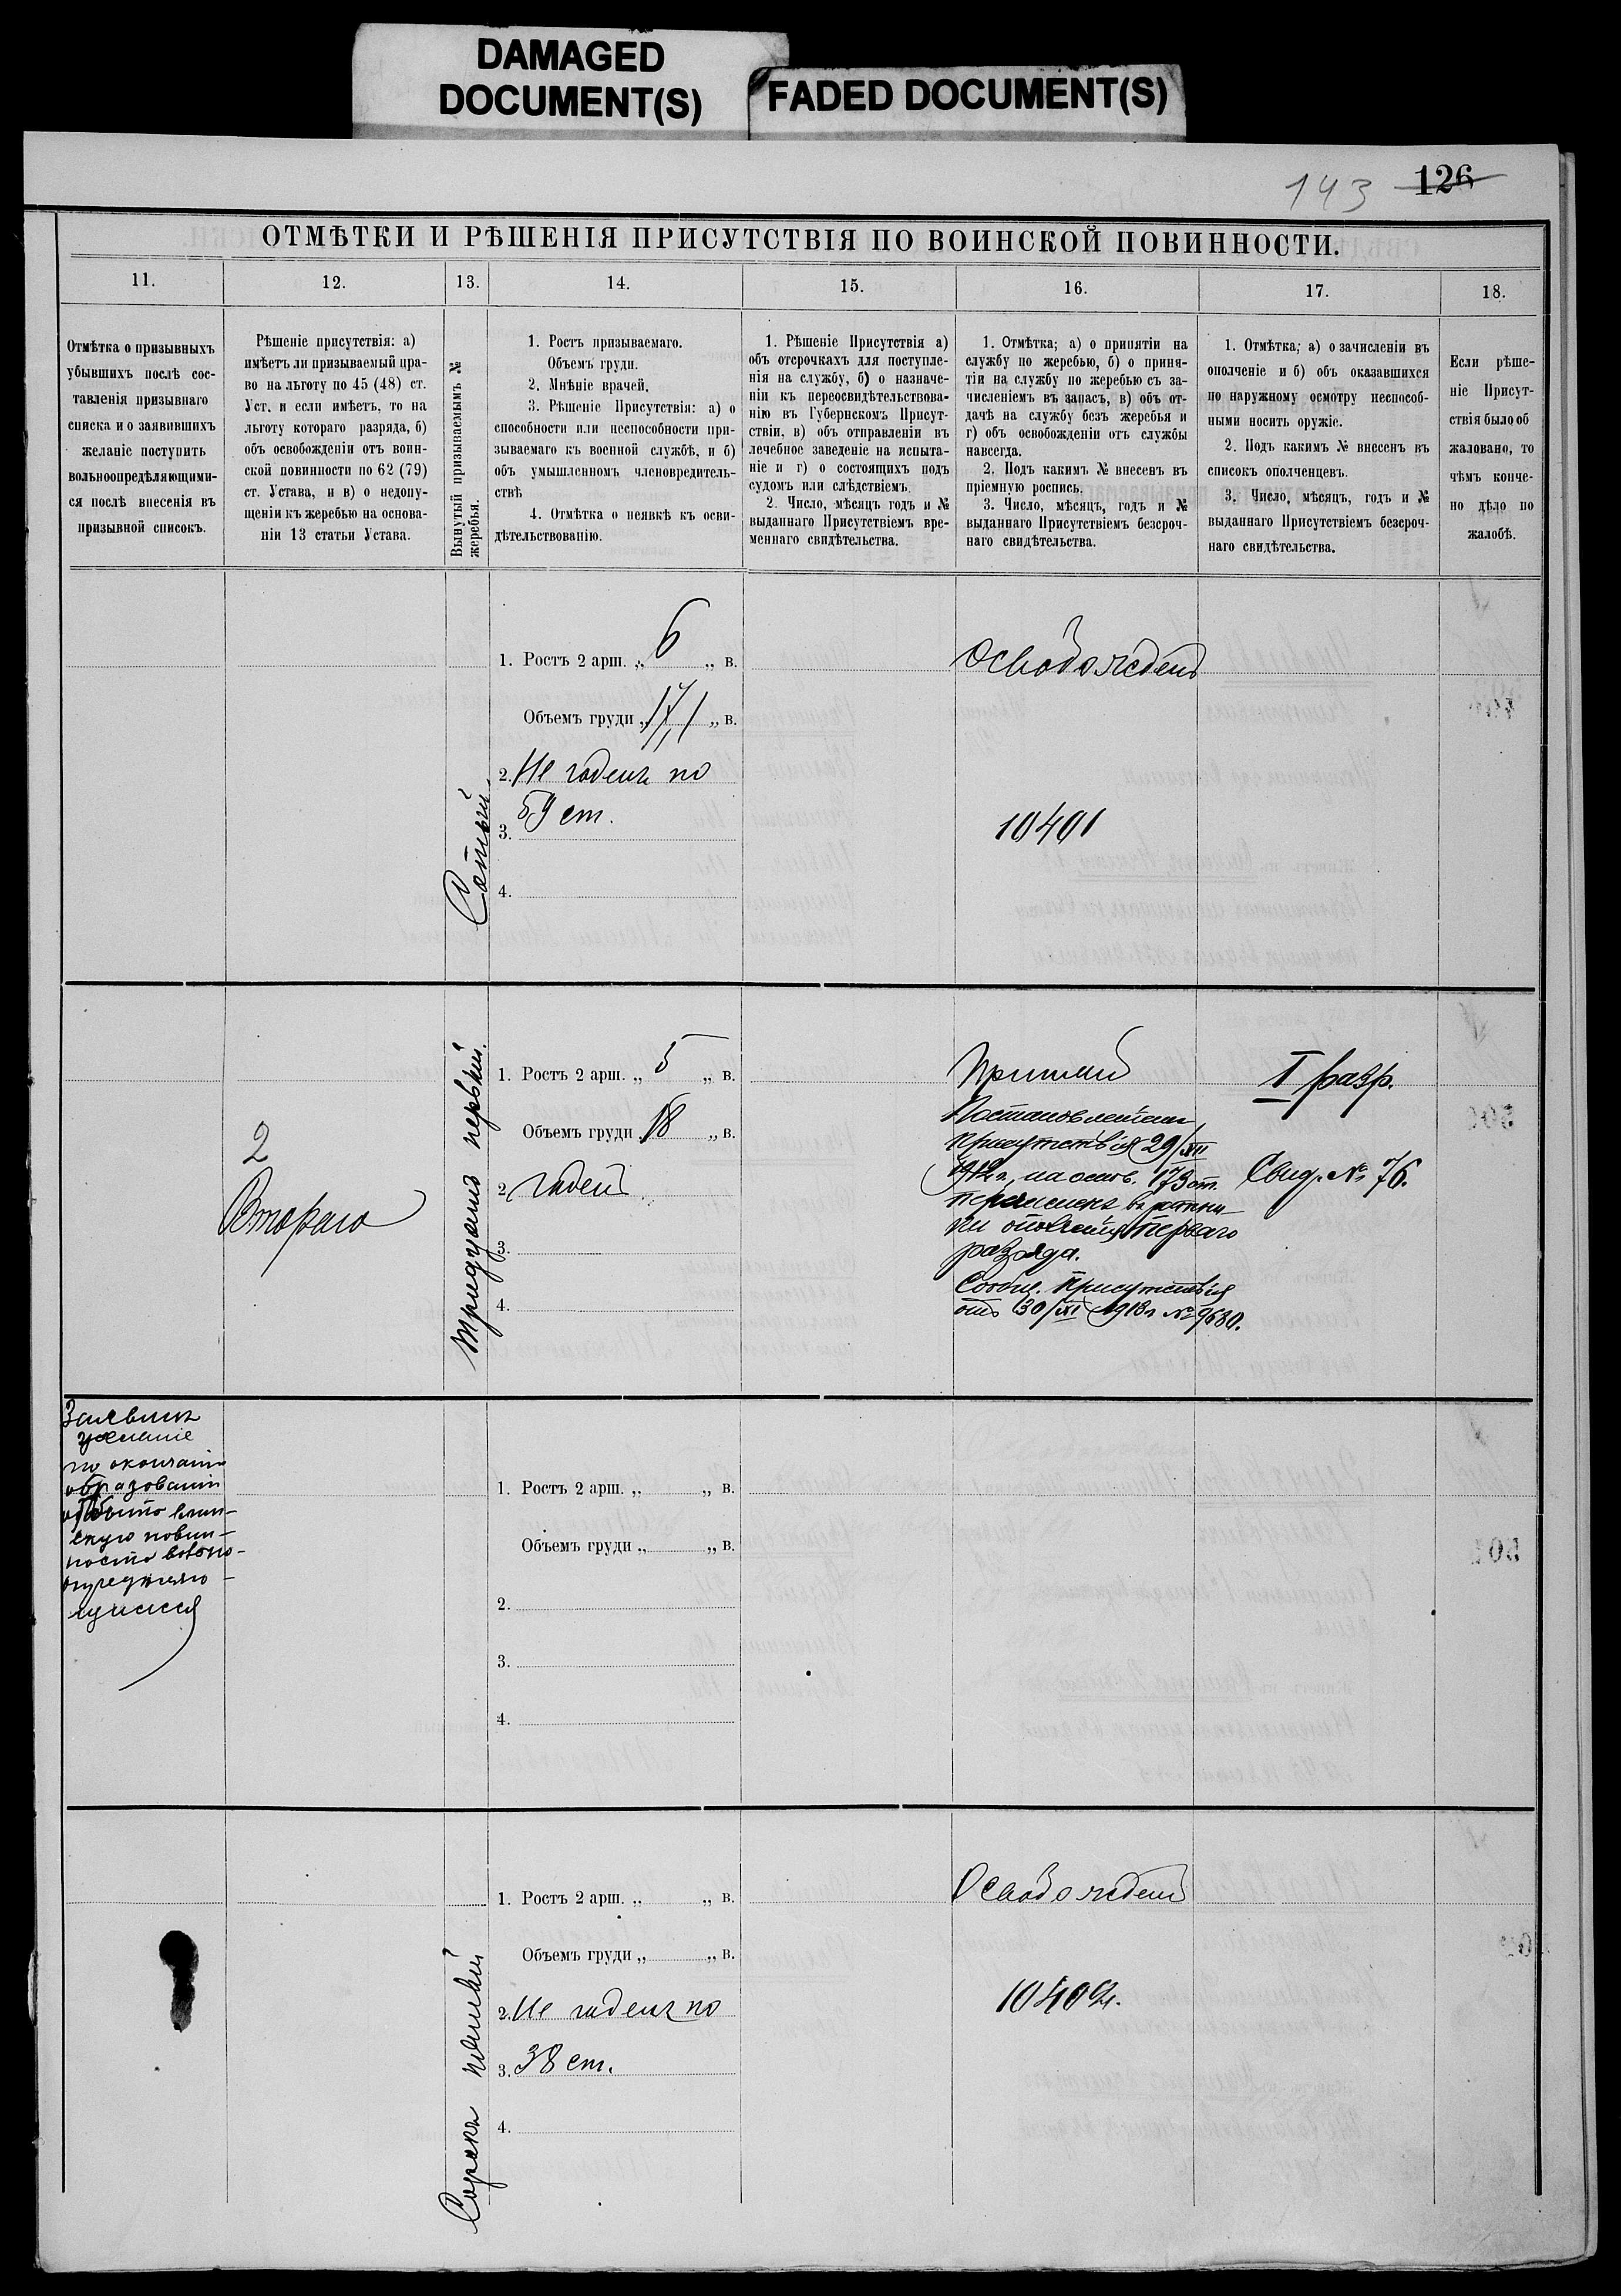 DAMAGED
DOCUMENT(S)
FADED DOCUMENT(S)
143 126
ОТМѢТКИ И РѢШЕНІЯ ПРИСУТСТВІЯ ПО ВОИНСКОЙ ПОВИННОСТИ.
11.
12.
13.
14.
15.
16.
17.
18.
Отмѣтка о призывныхъ
убывшихъ послѣ сос-
тавленія призывнаго
списка и о заявившихъ
желаніе поступить
вольноопредѣляющими-
ся послѣ внесенія въ
призывной списокъ.
Рѣшеніе присутствія: а)
имѣетъ ли призываемый пра-
во на льготу по 45 (48) ст.
Уст. и если имѣетъ, то на
льготу котораго разряда, б)
объ освобожденіи отъ воин-
ской повинности по 62 (79)
ст. Устава, и в) о недопу-
щеніи къ жеребью на основа-
ніи 13 статьи Устава.
Вынутый призываемымъ №
жеребья.
1. Ростъ призываемаго.
Объемъ груди.
2. Мнѣніе врачей.
3. Рѣшеніе Присутствія: а) о
способности или неспособности при-
зываемаго къ военной службѣ, и б)
объ умышленномъ членовредитель-
ствѣ
4. Отмѣтка о неявкѣ къ осви-
дѣтельствованію.
1. Рѣшеніе Присутствія а)
объ отсрочкахъ для поступле-
нія на службу, б) о назначе-
ніи къ переосвидѣтельствова-
нію въ Губернскомъ Присут-
ствіи, в) объ отправленіи въ
лечебное заведеніе на испыта-
ніе и г) о состоящихъ подъ
судомъ или слѣдствіемъ.
2. Число, мѣсяцъ годъ и №
выданнаго Присутствіемъ вре-
меннаго свидѣтельства.
1. Отмѣтка; а) о принятіи на
службу по жеребью, б) о приня-
тіи на службу по жеребью съ за-
численіемъ въ запасъ, в) объ от-
дачѣ на службу безъ жеребья и
г) объ освобожденіи отъ службы
навсегда.
2. Подъ какимъ № внесенъ въ
пріемную роспись.
3. Число, мѣсяцъ, годъ и №
выданнаго Присутствіемъ безсроч-
наго свидѣтельства.
1. Отмѣтка; а) о зачисленіи въ
ополченіе и б) объ оказавшихся
по наружному осмотру неспособ-
ными носить оружіе.
2. Подъ какимъ № внесенъ въ
списокъ ополченцевъ.
3. Число, мѣсяцъ, годъ и №
выданнаго Присутствіемъ безсроч-
наго свидѣтельства.
Если рѣше-
ніе Присут-
ствія было об
жаловано, то
чѣмъ конче-
но дѣло по
жалобѣ.
Сотый.
1. Ростъ 2 арш. „ 6 „ в.
Объемъ груди „ 17,1 „ в.
2. Не годенъ по
59 ст.
3.
4.
Освобожденъ
10401
2
Втораго
Тридцать первый.
1. Ростъ 2 арш. „ 5 „ в.
Объемъ груди „ 18 „ в.
2. Годенъ
3.
4.
Принятъ
Постановленіемъ
Присутствія 29/XII
1912 г., на основ. 173 ст.
перечисленъ въ ратни-
ки ополченія перваго
разряда.
Сообщ. Присутствія
отъ 30/XI 1913 г. № 9680.
I разр.
Свид. № 76.
Заявилъ
желаніе
по окончаніи
образованія
отбыть воин-
скую повин-
ность вольно-
опредѣляю-
щимся
1. Ростъ 2 арш. „ „ в.
Объемъ груди „ „ в.
2.
3.
4.
Сорокъ
1. Ростъ 2 арш. „ „ в.
Объемъ груди „ „ в.
2. Не годенъ по
3. 38 ст.
4.
Освобожденъ
10402.